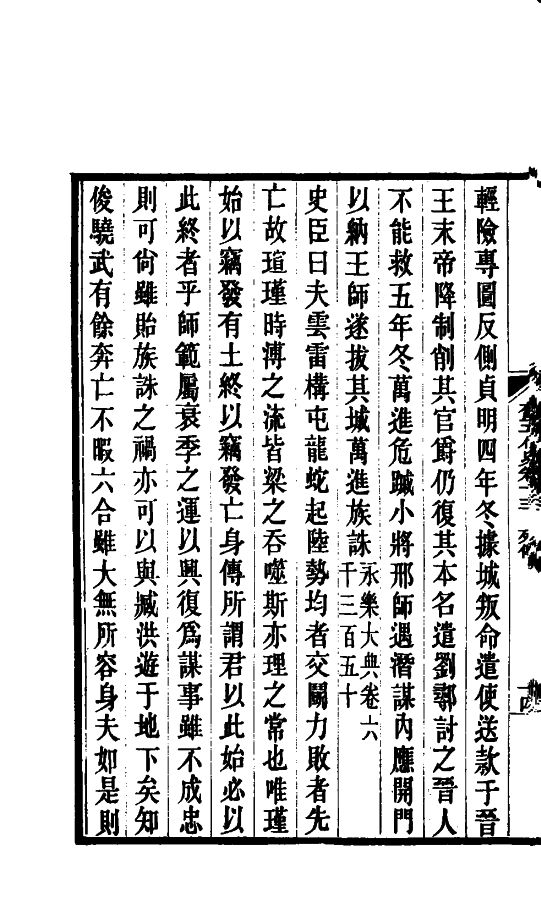 輕險專圖反側貞明四年冬據城叛命遣使送款于晉
王末帝降制削其官爵仍復其本名遣劉鄩討之晉人
不能救五年冬萬進危蹙小將邢師遇潛謀內應開門
以納王師遂拔其城萬進族誅永樂大典卷一萬六
千三百五十
史臣曰夫雲雷構屯龍蛇起陸勢均者交鬬力敗者先
亡故瑄瑾時溥之流皆梁之吞噬斯亦理之常也唯瑾
始以竊發有土終以竊發亡身傳所謂君以此始必以
此終者乎師範屬衰季之運以興復爲謀事雖不成忠
則可尙雖貽族誅之禍亦可以與臧洪遊于地下矣知
俊驍武有餘奔亡不暇六合雖大無所容身夫如是則